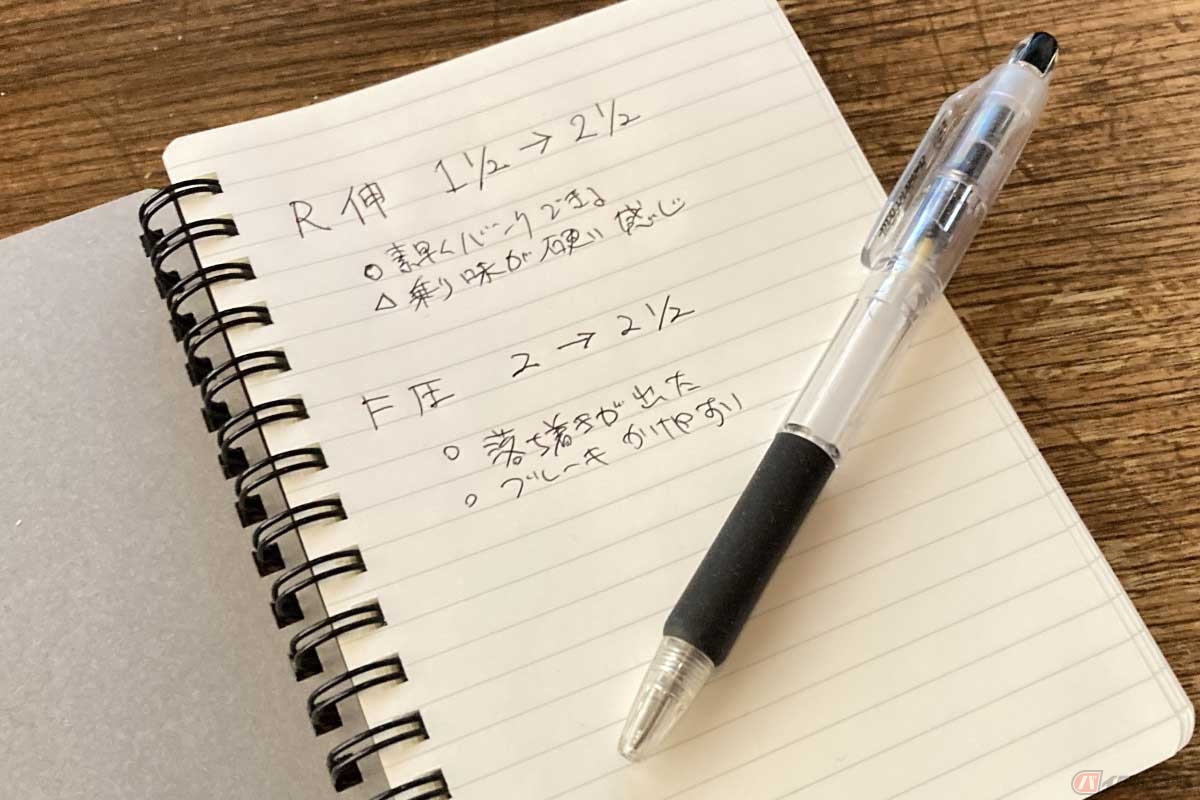 R 伸 1 1/2 → 2 1/2
○ 素早くバンクできる
△ 乗り味が硬い感じ
F 圧 2 → 2 1/2
○ 落ち着きが出た
○ ブレーキかけやすい